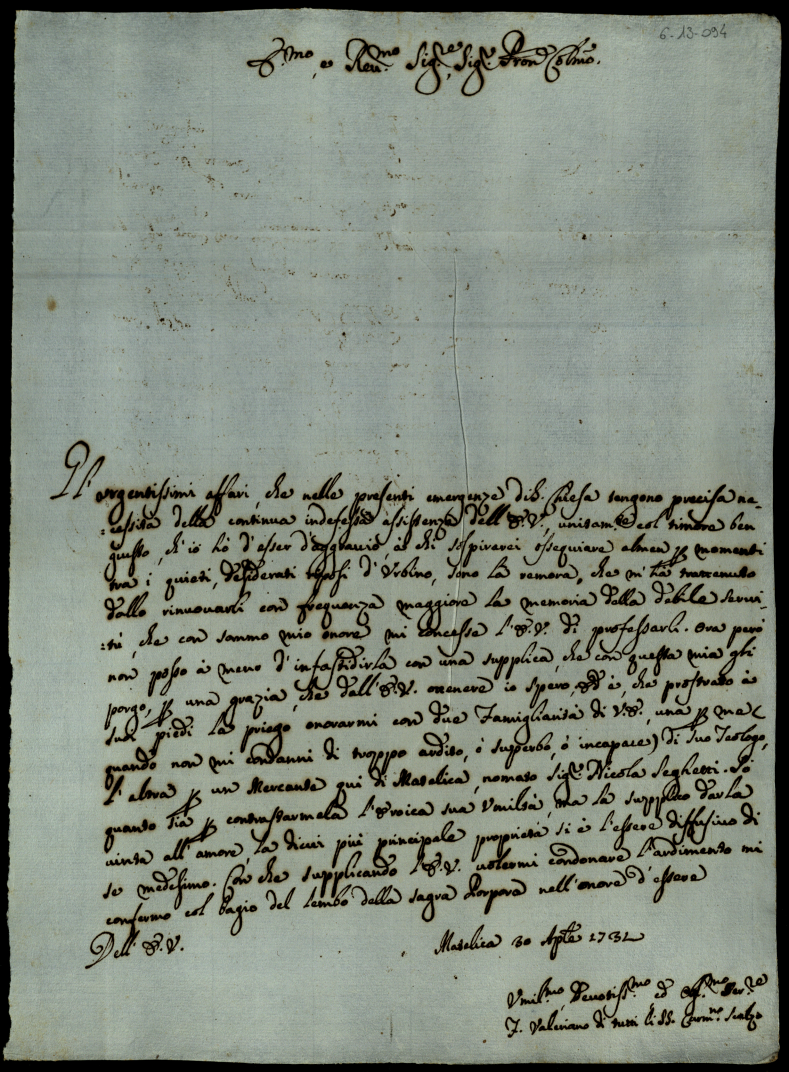 6-13-094
E.mo, e Rev.mo Sig.re, Sig.r Pron Colmo.
Gl' urgentissimi affari, che nelle presenti emergenze di S. Chiesa tengono precisa ne-
:cessità della continua indefessa assistenza dell' E.V., unitam.te col timore ben
giusto, ch' io hò d'esser d'aggravio, à chi sospirerei ossequiare almen p momenti
tra i quieti, desiderati riposi d' Urbino, sono la remora, che m' hà trattenuto
dallo rinuovarli con frequenza maggiore la memoria della debile servi-
:tù, che con sommo mio onore mi concesse l' E.V. di professarli. Ora però
non posso à meno d' infastidirla con una supplica, che con questa mia gli
porgo, p una grazia, che dall' E.V. ottenere io spero, ed è, che prostrato à
suoi piedi la priego onorarmi con due Famigliarità di V.E., una p me (
quando non mi condanni di troppo ardito, ò superbo, ò incapace) di suo Teologo,
l' altra p un Mercante qui di Matelica, nomato Sig.r Nicola Seghetti. Sò
quanto sia p contrastarmela l' Eroica sua Umiltà, ma la supplico darla
vinta all' amore, la di cui più principale proprietà si è l' essere diffusivo di
se medesimo. Con che supplicando l' E.V. volermi condonare l' ardimento mi
confermo col bagio del lembo della sagra Porpora nell' onore d' essere
Dell' E.V.
Matelica 30 Aple 1731
Umil.mo, Devotiss.mo ed Obl.mo Ser.re
F. Valeriano di tutti li SS. Carm.no Scalzo